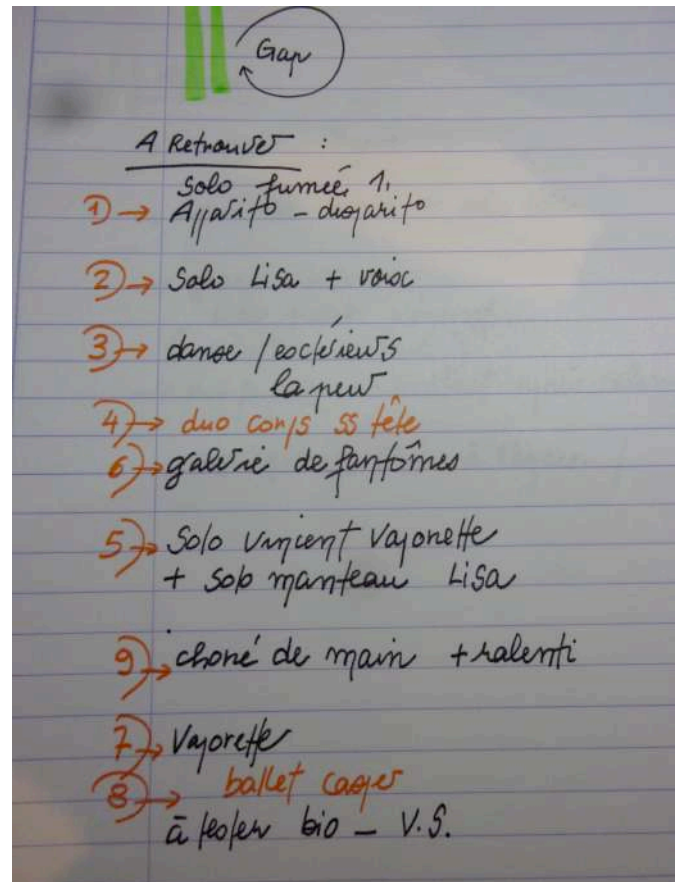 Gap
A Retrouver :
Solo fumée 1.
1) → Apparit° - disparit°
2) → Solo Lisa + voix
3) → danse / extérieurs
la peur
4) → duo corps ss tête
6) → galerie de fantômes
5) → Solo Vincent Vaponette
+ solo manteau Lisa
9) → choré de main + ralenti
7) → Vaporette
8) → ballet casper
à tester bio - V.S.